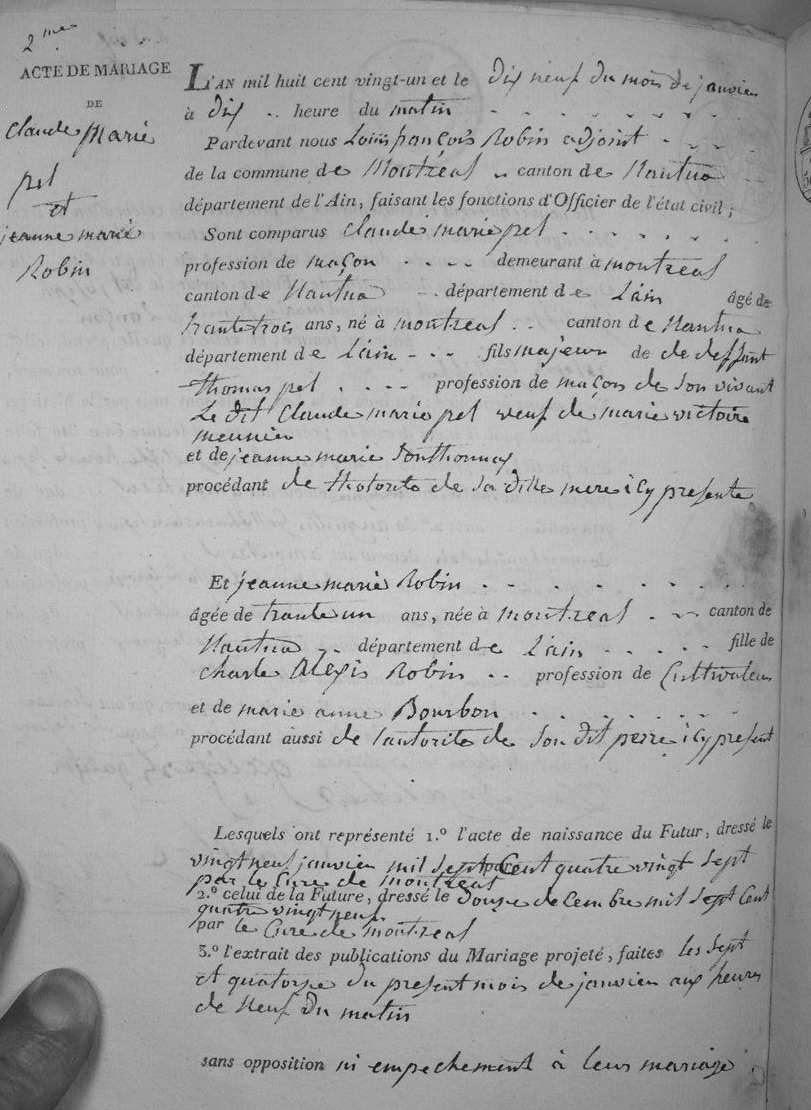 2.me
ACTE DE MARIAGE
DE
Claude Marie
pel
et
jeanne marie
Robin
L'AN mil huit cent vingt-un et le dix neuf du mois de janvier
à dix .. heure du matin
Pardevant nous Louis françois Robin adjoint
de la commune de Montréal canton de Nantua
département de l'Ain, faisant les fonctions d'Officier de l'état civil;
Sont comparus Claude marie pel
profession de maçon demeurant à montreal
canton de Nantua département de L'ain âgé de
trante trois ans, né à montreal canton de Nantua
département de L'ain fils majeur de de deffunt
thomas pel profession de maçon de son vivant
Le dit Claude marie pel veuf de marie victoire
meunier
et de jeanne marie
procédant de thotorite de sa ditte mere icy presente
Et jeanne marie Robin
âgée de trante un ans, née à montreal canton de
Nantua département de L'ain fille de
Charle Alexis Robin profession de Cultivateur
et de marie anne Bourbon
procédant aussi de l'autorite de son dit perre icy present
Lesquels ont représenté 1.º l'acte de naissance du Futur, dressé le
vingt neuf janvier mil sept Cent quatre vingt sept
par le Cure de montreal
2.º celui de la Future, dressé le douze decembre mil sept Cent
quatre vingt neuf
par le Cure de montreal
3.º l'extrait des publications du Mariage projeté, faites les sept
et quatorze du present mois de janvier aux heures
de neuf du matin
sans opposition ni empechement à leur mariage